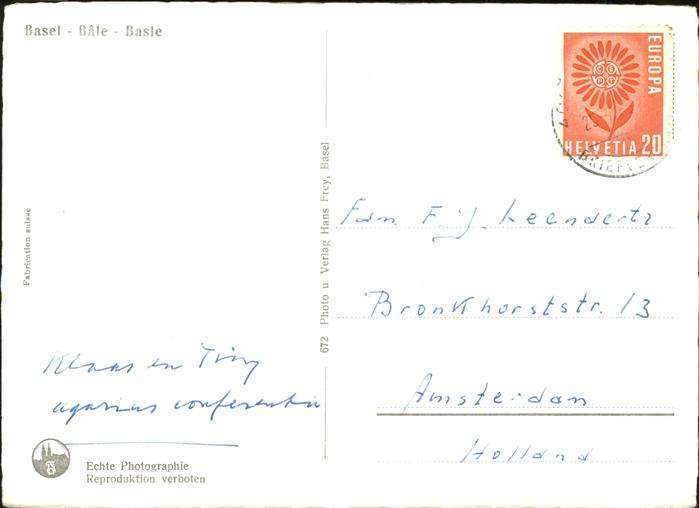 Basel - Bâle - Basle
EUROPA
HELVETIA 20
Fabrication suisse
672 Photo u. Verlag Hans Frey, Basel
Fam. Leendertz
Bronkhorststr. 13
Amsterdam
Holland
Klaas en Tiny
conferentie
Echte Photographie
Reproduktion verboten